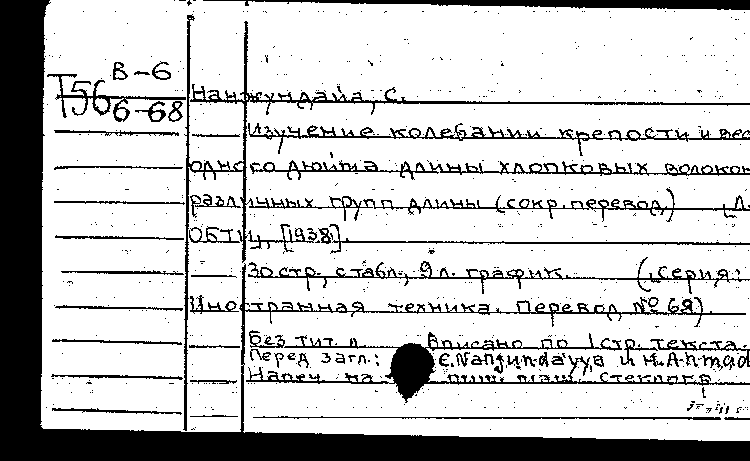 В-6
Т56
6-68
Нанжундайа, С.
Изучение колебании крепости и вес
одного дюйма длины хлопковых волокон
различных групп длины (сокр. перевод) Л.
ОБТИ, [1938].
30 стр., с табл., 9 л. график. (Серия:
Иностранная техника. Перевод № 68).
Без тит. л. Вписано по 1 стр. текста.
Перед загл.: C. Nanjundayya и H. Ahmad
Напеч. на пиш. маш. Стеклогр.